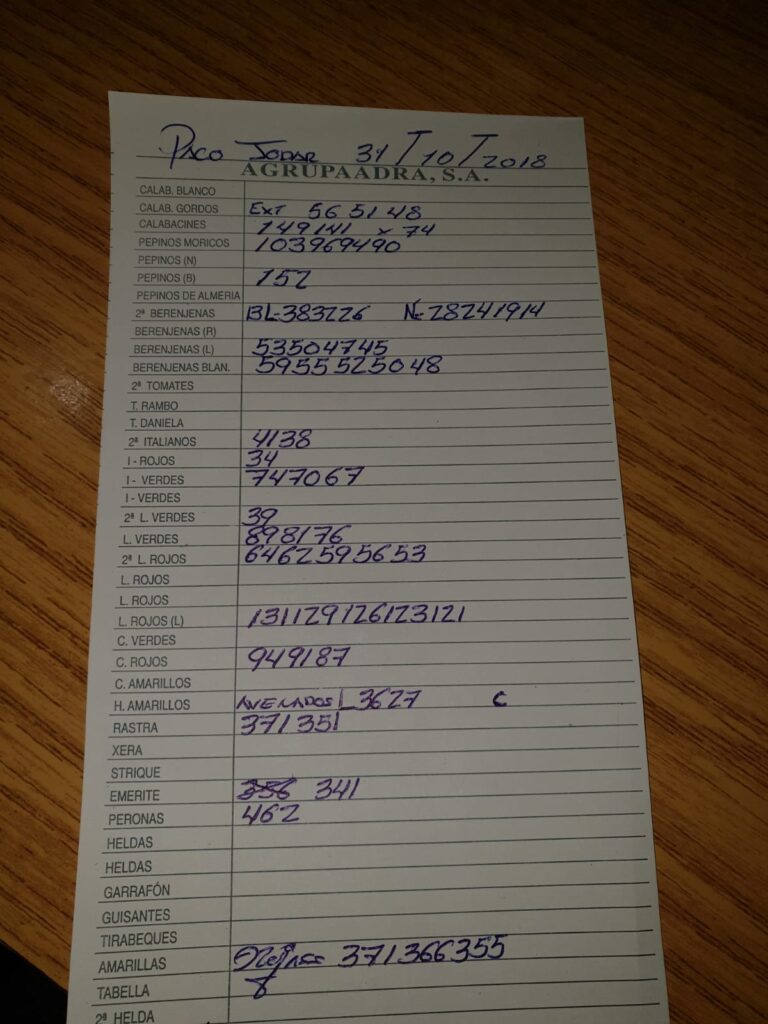 PACO JODAR 31/10/2018
AGRUPAADRA, S.A.
CALAB. BLANCO
CALAB. GORDOS EXT 56 51 48
CALABACINES 149141 x 74
PEPINOS MORICOS 103969490
PEPINOS (N)
PEPINOS (B) 152
PEPINOS DE ALMERIA
2ª BERENJENAS BL-383226 N-28241914
BERENJENAS (R)
BERENJENAS (L) 53504745
BERENJENAS BLAN. 5955525048
2ª TOMATES
T. RAMBO
T. DANIELA
2ª ITALIANOS 4138
I - ROJOS 34
I - VERDES 747067
I - VERDES
2ª L. VERDES 39
L. VERDES 898176
2ª L. ROJOS 6462595653
L. ROJOS
L. ROJOS
L. ROJOS (L) 131129126123121
C. VERDES
C. ROJOS 949187
C. AMARILLOS
H. AMARILLOS L 3627 C
RASTRA 371351
XERA
STRIQUE
EMERITE 356 341
PERONAS 462
HELDAS
HELDAS
GARRAFÓN
GUISANTES
TIRABEQUES
AMARILLAS 371366355
TABELLA
2ª HELDA